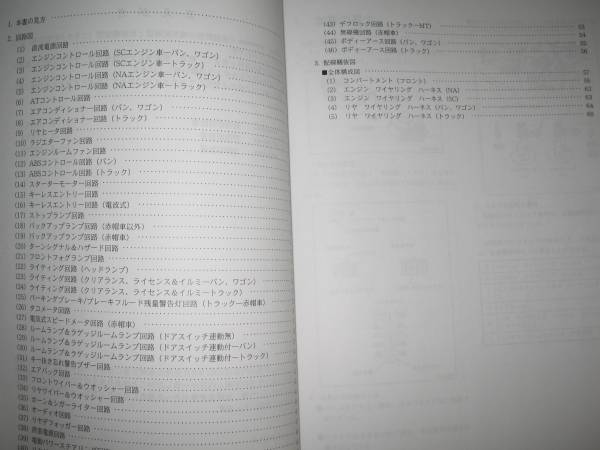 1. 本書の見方
2. 回路図
(1) 直流電源回路
(2) エンジンコントロール回路 (SCエンジン車ーバン、ワゴン)
(3) エンジンコントロール回路 (SCエンジン車ートラック)
(4) エンジンコントロール回路 (NAエンジン車ーバン、ワゴン)
(5) エンジンコントロール回路 (NAエンジン車ートラック)
(6) ATコントロール回路
(7) エアコンディショナー回路 (バン、ワゴン)
(8) エアコンディショナー回路 (トラック)
(9) リヤヒータ回路
(10) ラジエターファン回路
(11) エンジンルームファン回路
(12) ABSコントロール回路 (バン)
(13) ABSコントロール回路 (トラック)
(14) スターターモーター回路
(15) キーレスエントリー回路
(16) キーレスエントリー回路 (電波式)
(17) ストップランプ回路
(18) バックアップランプ回路 (赤帽車以外)
(19) バックアップランプ回路 (赤帽車)
(20) ターンシグナル&ハザード回路
(21) フロントフォグランプ回路
(22) ライティング回路 (ヘッドランプ)
(23) ライティング回路 (クリアランス、ライセンス&イルミーバン、ワゴン)
(24) ライティング回路 (クリアランス、ライセンス&イルミートラック)
(25) パーキングブレーキ/ブレーキフルード残量警告灯回路 (トラックー赤帽車)
(26) タコメータ回路
(27) 電気式スピードメータ回路 (赤帽車)
(28) ルームランプ&ラゲッジルームランプ回路 (ドアスイッチ連動無)
(29) ルームランプ&ラゲッジルームランプ回路 (ドアスイッチ連動付ーバン)
(30) ルームランプ&ラゲッジルームランプ回路 (ドアスイッチ連動付ートラック)
(31) キー抜き忘れ警告ブザー回路
(32) エアバッグ回路
(33) フロントワイパー&ウオッシャー回路
(34) リヤワイパー&ウオッシャー回路
(35) ホーン&シガーライター回路
(36) オーディオ回路
(37) リヤデフォッガー回路
(39) 電動パワーステアリン
(43) デフロック回路 (トラックーMT) 53
(44) 無線機回路 (赤帽車) 54
(45) ボディーアース回路 (バン、ワゴン) 55
(46) ボディーアース回路 (トラック) 56
3. 配線艤装図
■全体構成図 57
(1) コンパートメント (フロント)
(2) エンジン ワイヤリング ハーネス (NA) 62
(3) エンジン ワイヤリング ハーネス (SC) 63
(4) リヤ ワイヤリング ハーネス (バン、ワゴン) 64
(5) リヤ ワイヤリング ハーネス (トラック)